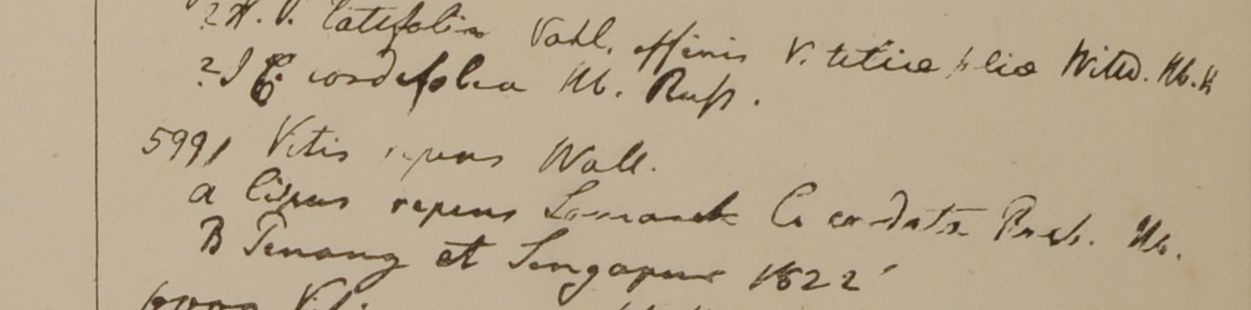 2 H. V. latifolia Vahl. affinis V. tiliae folia Willd. Hb. H
2 I C. cordifolia Hb. Russ.
5991 Vitis repens Wall.
a Cissus repens Lamarck C. cordata Roxb. Hb.
B Penang et Singapur 1822
6000 Vitis